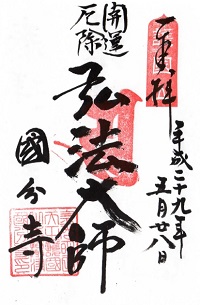 奉拝
平成二十九年
五月廿八日
開運
厄除
弘法大師
國分寺